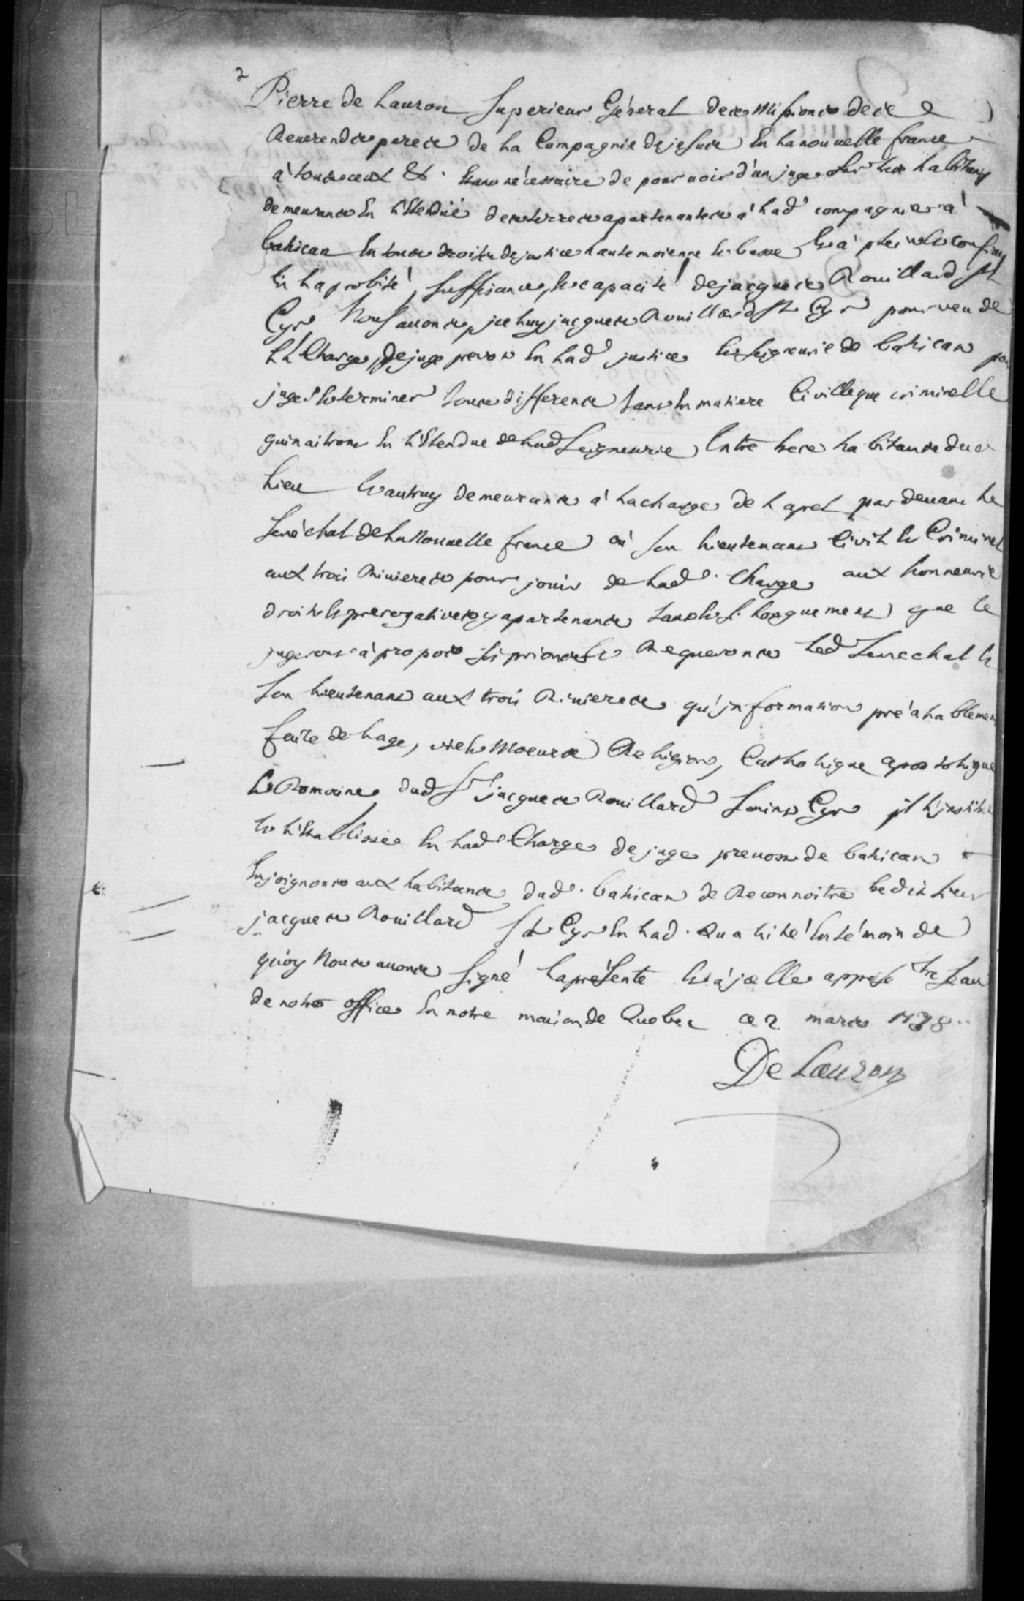 2
Pierre de Lauzon Superieur Général des Missions des
Reverends peres de la Compagnie de jesus En la nouvelle france
à tous ceux &. Etant nécessaire de pourvoir d'un juge les habitans
demeurans En l'Etendüe des terres apartenantes à lad. compagnie à
batiscan En tous droits de justice haute moienne et basse Et à plein confians
En la probité, suffisance, et capacité de jacques Rouillard St
Cyr Nous avons icelluy jacques Rouillard St Cyr pourveu de
la Charge de juge prevost En lad. justice et seigneurie de batiscan pour
juger et terminer tous differens tant En matiere Civille que criminelle
qui naitront En l'Etendue de lad Seigneurie Entre les habitans dud.
lieu Et autres demeurans à la charge de l'apel par devant le
Sénéchal de la Nouvelle france où son lieutenant Civil et Criminel
aux trois Rivieres pour jouir de lad. Charge aux honneurs
droits et prerogatives y apartenans tant et si longuement que le
jugerons à propos Si prions et Requerons led Senechal et
Son lieutenant aux trois Rivieres qu'information préalablement
faite de l'age, vie et Moeurs Religion, Catholique apostolique
Et Romaine dud Sr jacques Rouillard Saint Cyr il l'institue
Et l'Etablisse En lad Charge de juge prevost de batiscan
Enjoignons aux habitans dud. batiscan de Reconnoitre ledit sieur
jacques Rouillard St Cyr En lad. qualité En témoin de
quoy Nous avons Signé la présente Et à icelle apposé le Sceau
de notre office En notre maison de Quebec ce 2 mars 1738..
De Lauzon